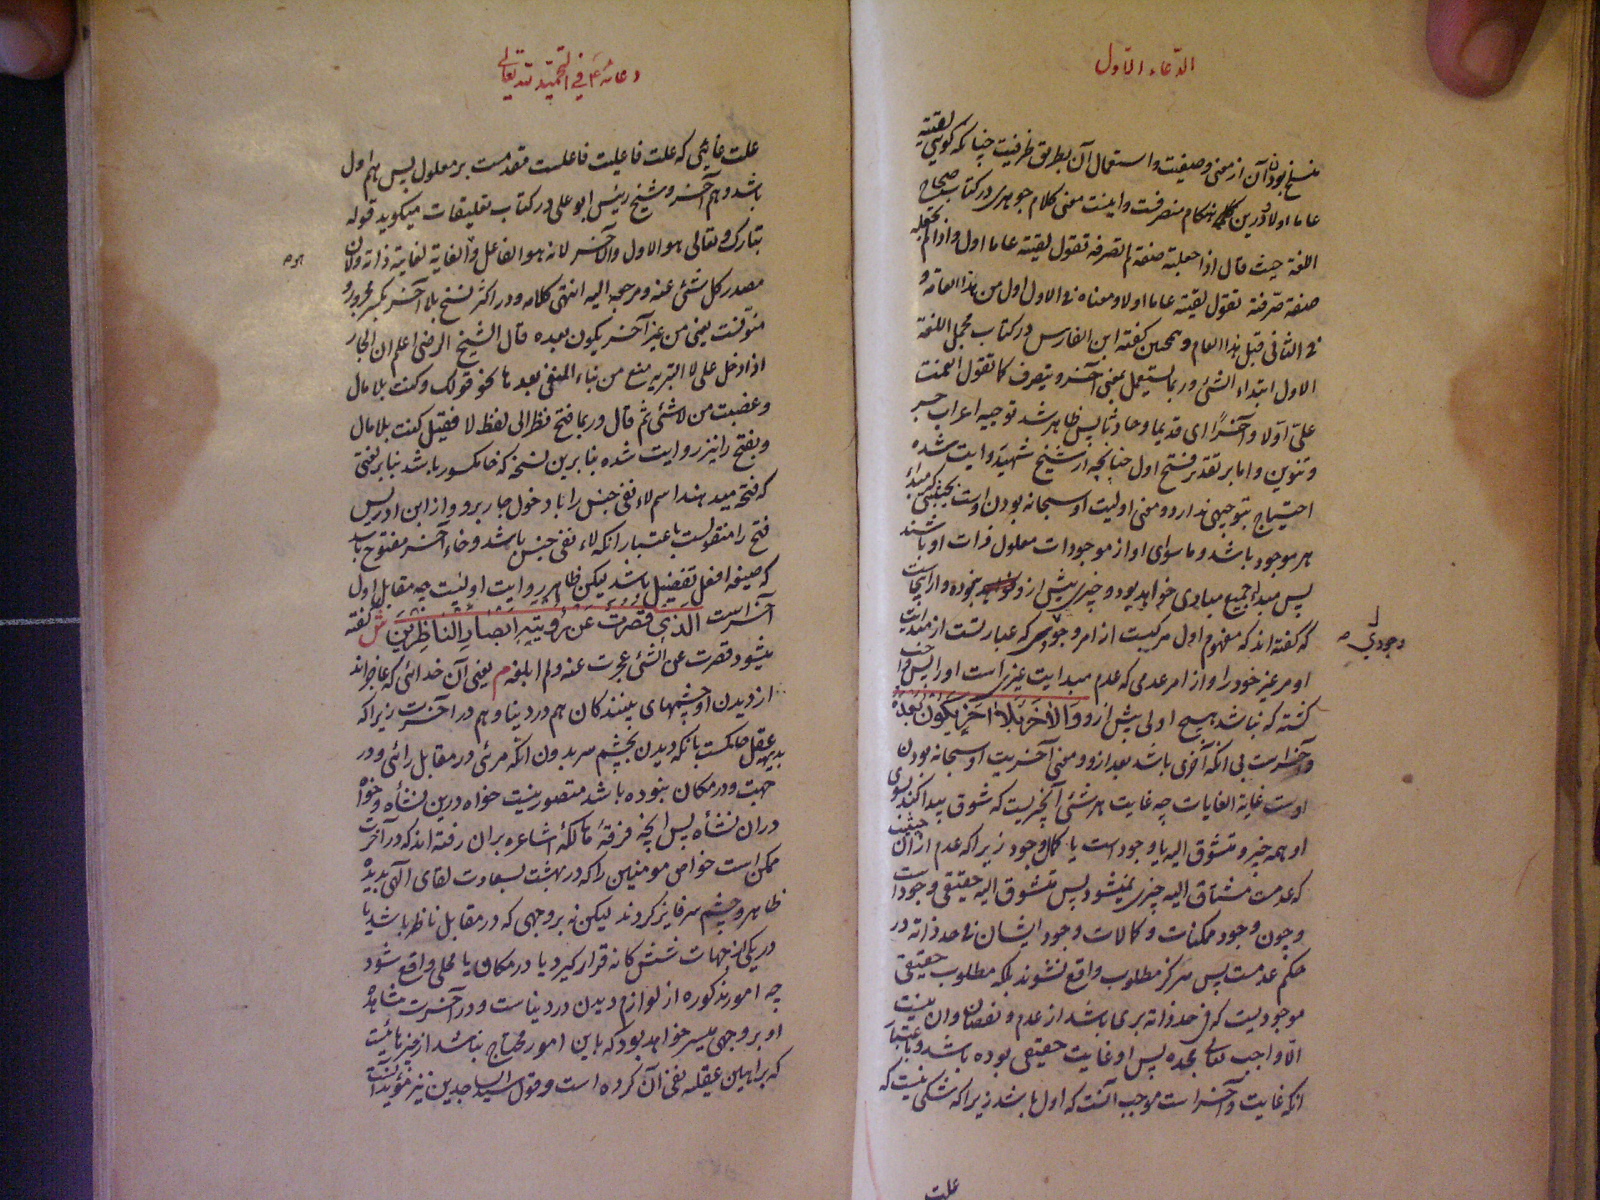 الدعاء الاول
منسلخ بودن آن از معنی وصفیت و استعمال آن بطریق ظرفیت چنانکه گویی لقیته
عاما اولا و درین هنگام منصرفست و اینست معنی کلام جوهری در کتاب صحاح
اللغة حیث قال اذا جعلته صفة لم تصرفه تقول لقیته عاما اول و اذا لم تجعله
صفة صرفته تقول لقیته عاما اولا و معناه فی الاول اول من هذا العام و
فی الثانی قبل هذا العام و همچنین گفته ابن الفارس در کتاب مجمل اللغة
الاول ابتداء الشئ و ربما یستعمل بمعنی آخر و یتصرف کما تقول انعمت
علیّ اوّلا و آخرًا ای قدیما و حادثا پس ظاهر شد توجیه اعراب جر
و تنوین و اما بر تقدیر فتح اول چنانچه از شیخ شهید روایت شده
احتیاج بتوجیهی ندارد و معنی اولیت او سبحانه بودن اوست بحیثیتی که مبداء
هر موجود باشد و ما سوای او از موجودات معلول ذات او باشند
پس مبدا جمیع مبادی خواهد بود و چیزی پیش از و نبوده و ازینجاست
که گفته اند که مفهوم اول مرکبست از امر وجودی که عبارتست از مبدائیت
او مر غیر خود را و از امر عدمی که عدم مبدایت غیری است او را پس
گشته که نباشد هیچ اولی پیش از و وَالْآخِرِ بِلَا آخِرٍ یَکُونُ بَعْدَهُ
و آخر است بی آنکه آخری باشد بعد از و و معنی آخریت او سبحانه بودن
اوست غایة الغایات چه غایت هر شئی آنچیزیست که شوق پیدا کند بسوی
او همه چیز و متشوق الیه یا وجود است یا کمال وجود زیرا که عدم از آن حیثیت
که عدمست مشتاق الیه چیزی نمیشود پس متشوق الیه حقیقی وجود است
و چون وجود ممکنات و کمالات وجود ایشان فی حد ذاته در
حکم عدمست پس هرگز مطلوب واقع نشوند بلکه مطلوب حقیقی
موجودیست که فی حد ذاته بری باشد از عدم و نقصان و آن نیست
الا واجب تعالی مجده پس او غایت حقیقی بوده باشد و باعتبار
آنکه غایت و آخر است موجب آنست که اول باشد زیرا که شکی نیست که
علت
وجودی
دعائه ع فی التحمید لله تعالی
علت غائی که علت فاعلیت فاعلست مقدمست بر معلول پس هم اول
باشد و هم آخر و شیخ رئیس ابو علی در کتاب تعلیقات میگوید قوله
تبارک و تعالی هو الاول و الآخر لانه هو الفاعل و الغایة لغایته ذاته و لان
مصدر کل شئی عنه و مرجعه الیه انتهی کلامه و در اکثر نسخ بلا آخر بکسر مجرور و
منونست یعنی من غیر آخر یکون بعده قال الشیخ الرضی اعلم ان الجار
اذا دخل علی لا التبریه منع من بناء المنفی بعدها نحو قولک و کنت بلا مال
و غضبت من لا شئی ثم قال و ربما فتح نظرا الی لفظ لا فقیل کنت بلا مال
و بفتح را نیز روایت شده بنا برین نسخه که خا مکسور باشد بنا بر لغتی
که فتحه میدهند اسم لاء نفی جنس را با دخول جار برو و از ابن ادریس
فتح را منقولست باعتبار آنکه لاء نفی جنس باشد و خاء آخر مفتوح باشد
که صیغه افعل تفضیل باشد لیکن ظاهر روایت اولیست چه مقابل اول
آخر است الَّذِی قَصُرَتْ عَنْ رُؤْیَتِهِ أَبْصَارُ النَّاظِرِینَ ش گفته
میشود قصرت عن الشئ عجزت عنه و لم ابلغه م یعنی آن خدائی که عاجز اند
از دیدن او چشمهای بینندگان هم در دنیا و هم در آخرت زیرا که
بدیهه عقل حاکمست بانکه دیدن بچشم سر بدون آنکه مرئی در مقابل رائی و در
جهت و در مکان بوده باشد متصور نیست خواه درین نشأه و خواه
در آن نشأه پس آنچه فرقهٔ هالکهٔ اشاعره بران رفته اند که در آخرت
ممکن است خواص مومنین را که در بهشت بسعادت لقای الهی بدیده
ظاهر و چشم سر فایز گردند لیکن نه بروجهی که در مقابل ناظر باشد یا
در یکی از جهات شش کانه قرار گیرد یا در مکان یا محلی واقع شود
چه امور مذکوره از لوازم دیدن در دنیاست و در آخرت مشاهده
او بر وجهی میسر خواهد بود که باین امور محتاج نباشد از چیزهائیست
که براهین عقلیه نفی آن کرده است و قول سید الساجدین نیز مؤید آنست